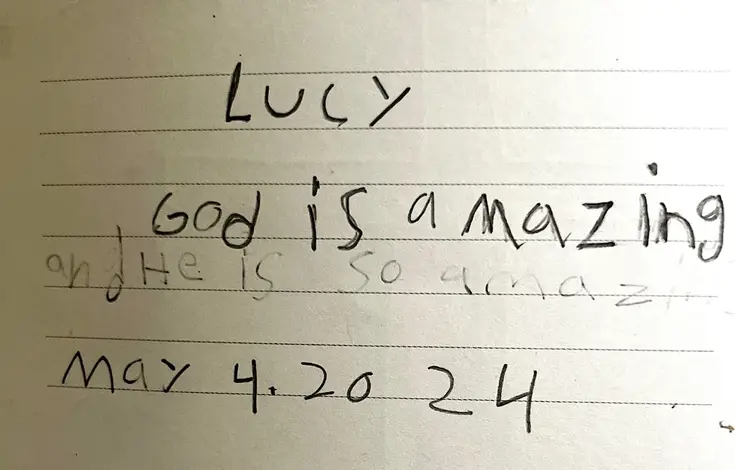 LUCY
God is amazing
and He is so amazi
May 4. 2024